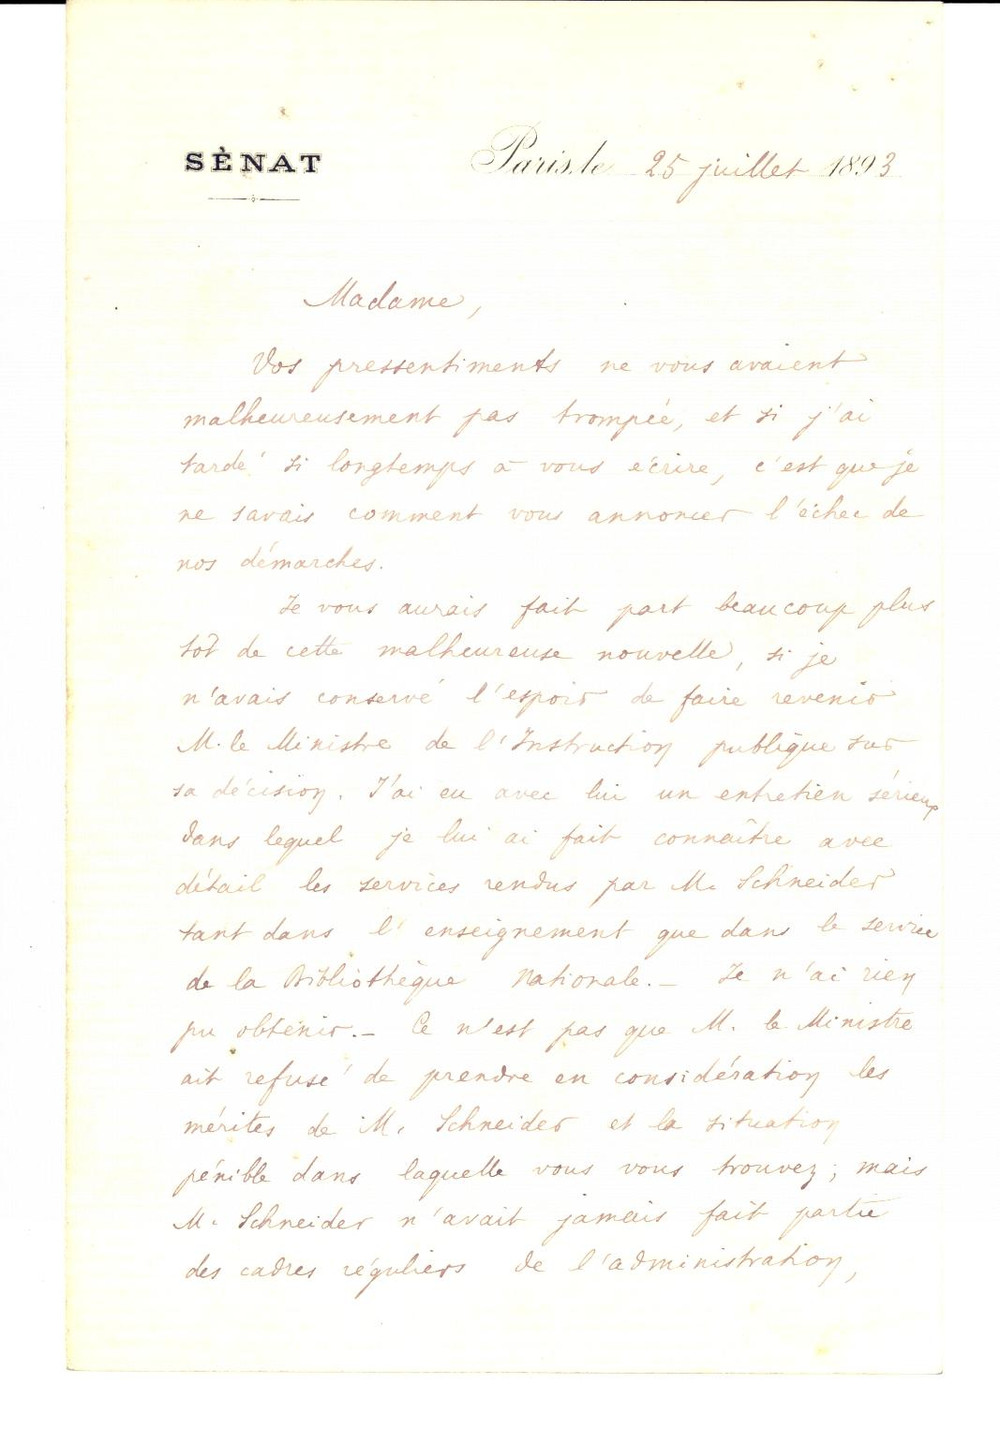 SÈNAT
Paris, le 25 juillet 1893
Madame,
Vos pressentiments ne vous avaient
malheureusement pas trompée, et si j'ai
tardé si longtemps à vous écrire, c'est que je
ne savais comment vous annoncer l'échec de
nos démarches.
Je vous aurais fait part beaucoup plus
tôt de cette malheureuse nouvelle, si je
n'avais conservé l'espoir de faire revenir
M. le Ministre de l'Instruction publique sur
sa décision. J'ai eu avec lui un entretien sérieux
dans lequel je lui ai fait connaître avec
détail les services rendus par M. Schneider
tant dans l'enseignement que dans le service
de la Bibliothèque Nationale. — Je n'ai rien
pu obtenir. — Ce n'est pas que M. le Ministre
ait refusé de prendre en considération les
mérites de M. Schneider et la situation
pénible dans laquelle vous vous trouvez ; mais
M. Schneider n'avait jamais fait partie
des cadres réguliers de l'administration,